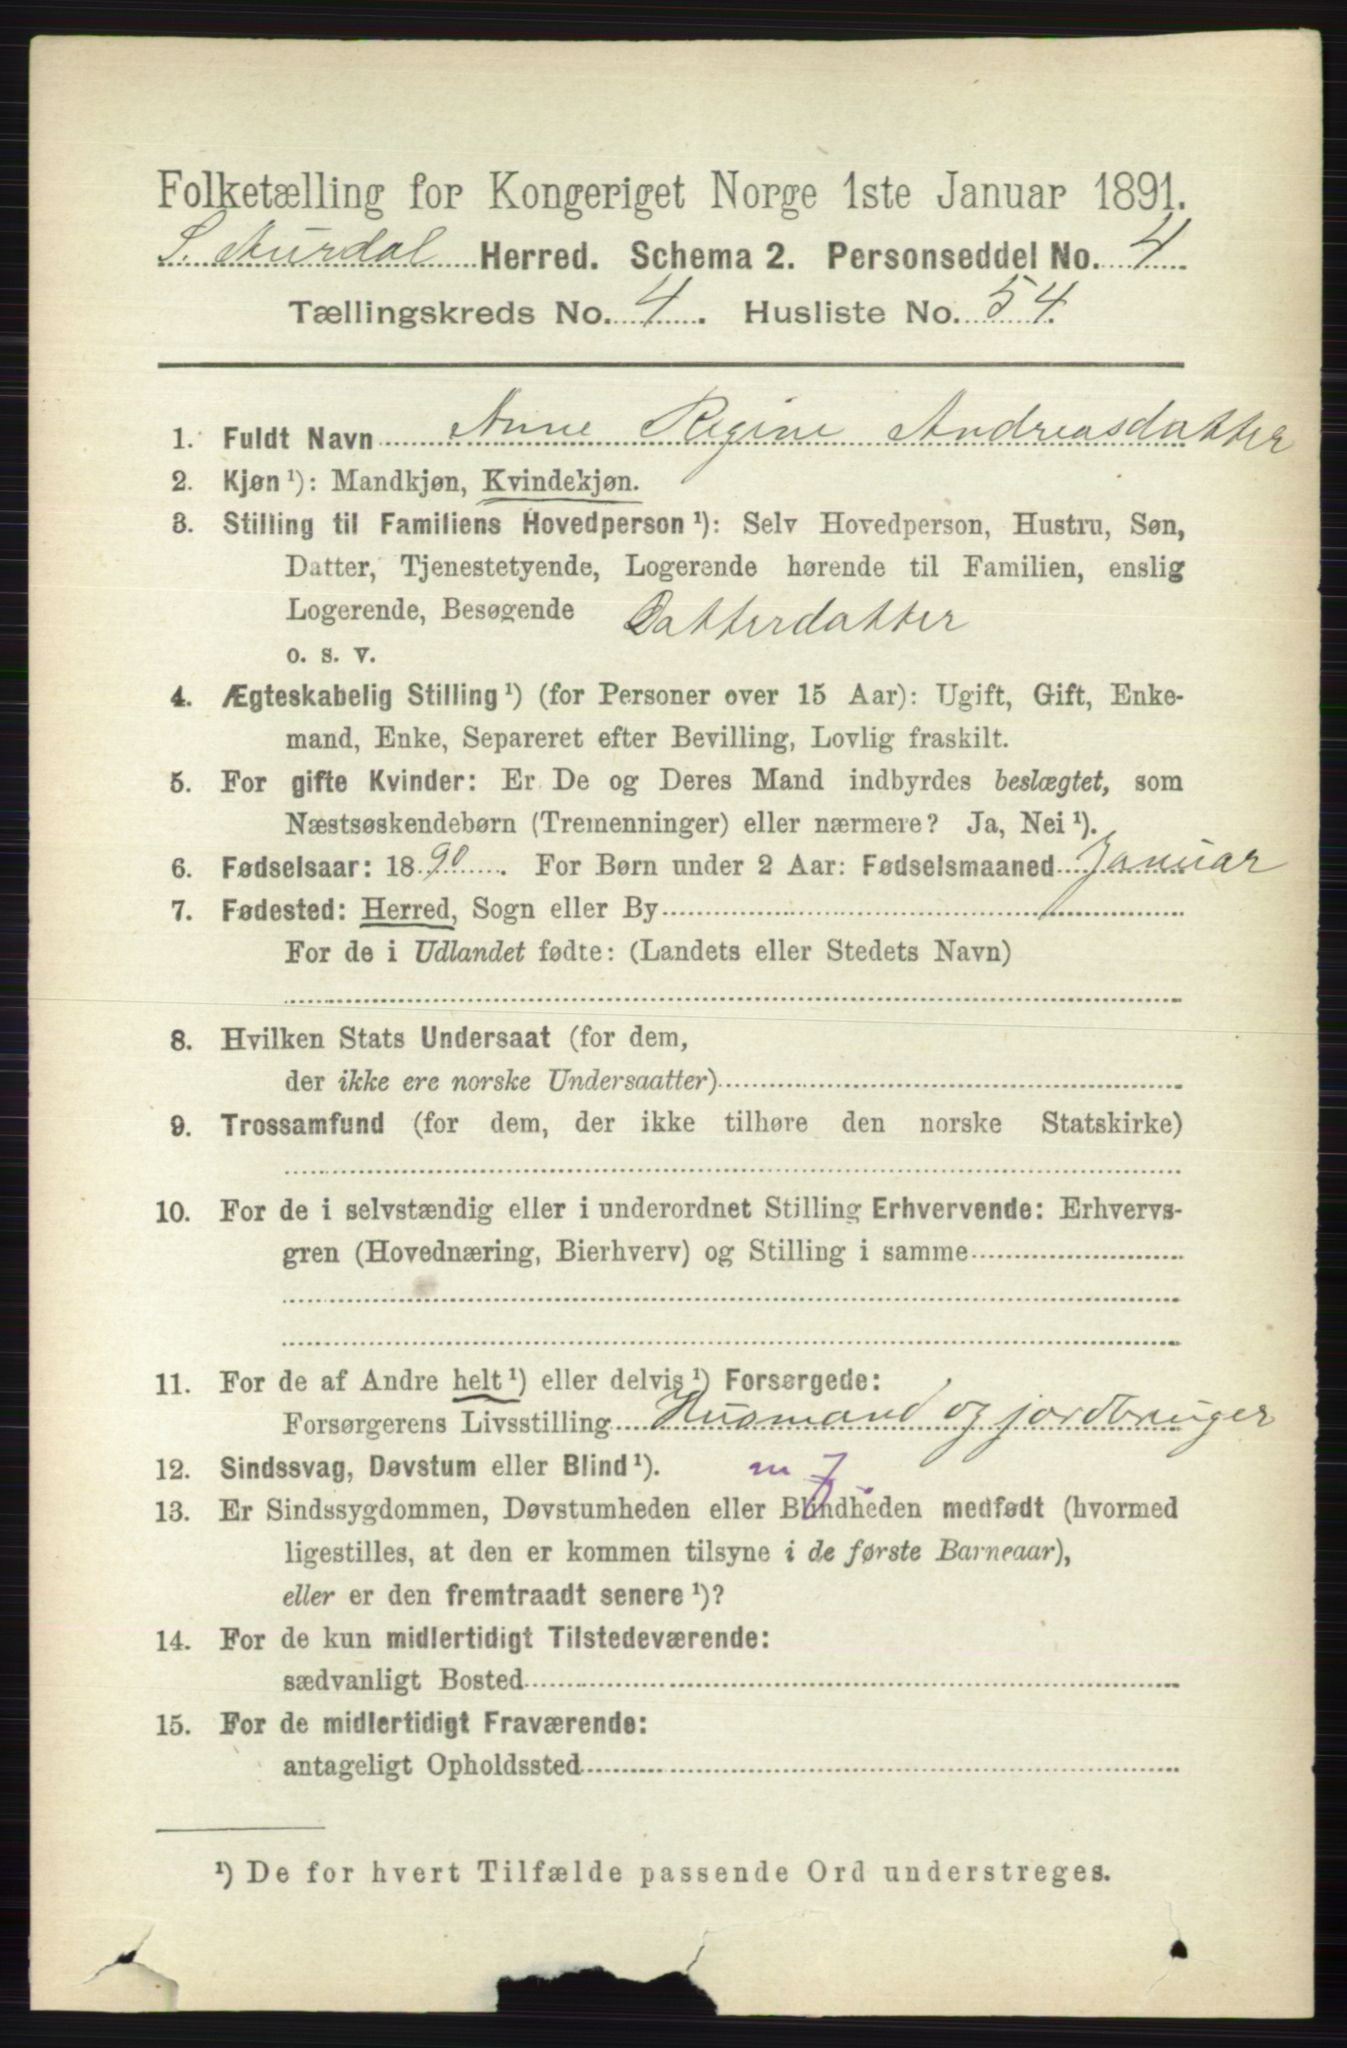 Folketælling for Kongeriget Norge 1ste Januar 1891.
S. Aurdal Herred. Schema 2. Personseddel No. 4
Tællingskreds No. 4. Husliste No. 54.
1. Fuldt Navn Anne Regine Andreasdatter
2. Kjøn ¹): Mandkjøn, Kvindekjøn.
3. Stilling til Familiens Hovedperson ¹): Selv Hovedperson, Hustru, Søn,
Datter, Tjenestetyende, Logerende hørende til Familien, enslig
Logerende, Besøgende Datterdatter
o. s. v.
4. Ægteskabelig Stilling ¹) (for Personer over 15 Aar): Ugift, Gift, Enke-
mand, Enke, Separeret efter Bevilling, Lovlig fraskilt.
5. For gifte Kvinder: Er De og Deres Mand indbyrdes beslægtet, som
Næstsøskendebørn (Tremenninger) eller nærmere? Ja, Nei ¹).
6. Fødselsaar: 1890. For Børn under 2 Aar: Fødselsmaaned Januar
7. Fødested: Herred, Sogn eller By
For de i Udlandet fødte: (Landets eller Stedets Navn)
8. Hvilken Stats Undersaat (for dem,
der ikke ere norske Undersaatter)
9. Trossamfund (for dem, der ikke tilhøre den norske Statskirke)
10. For de i selvstændig eller i underordnet Stilling Erhvervende: Erhvervs-
gren (Hovednæring, Bierhverv) og Stilling i samme
11. For de af Andre helt ¹) eller delvis ¹) Forsørgede:
Forsørgerens Livsstilling Husmand og jordbruger
12. Sindssvag, Døvstum eller Blind ¹).
13. Er Sindssygdommen, Døvstumheden eller Blindheden medfødt (hvormed
ligestilles, at den er kommen tilsyne i de første Barneaar),
eller er den fremtraadt senere ¹)?
14. For de kun midlertidigt Tilstedeværende:
sædvanligt Bosted
15. For de midlertidigt Fraværende:
antageligt Opholdssted
¹) De for hvert Tilfælde passende Ord understreges.